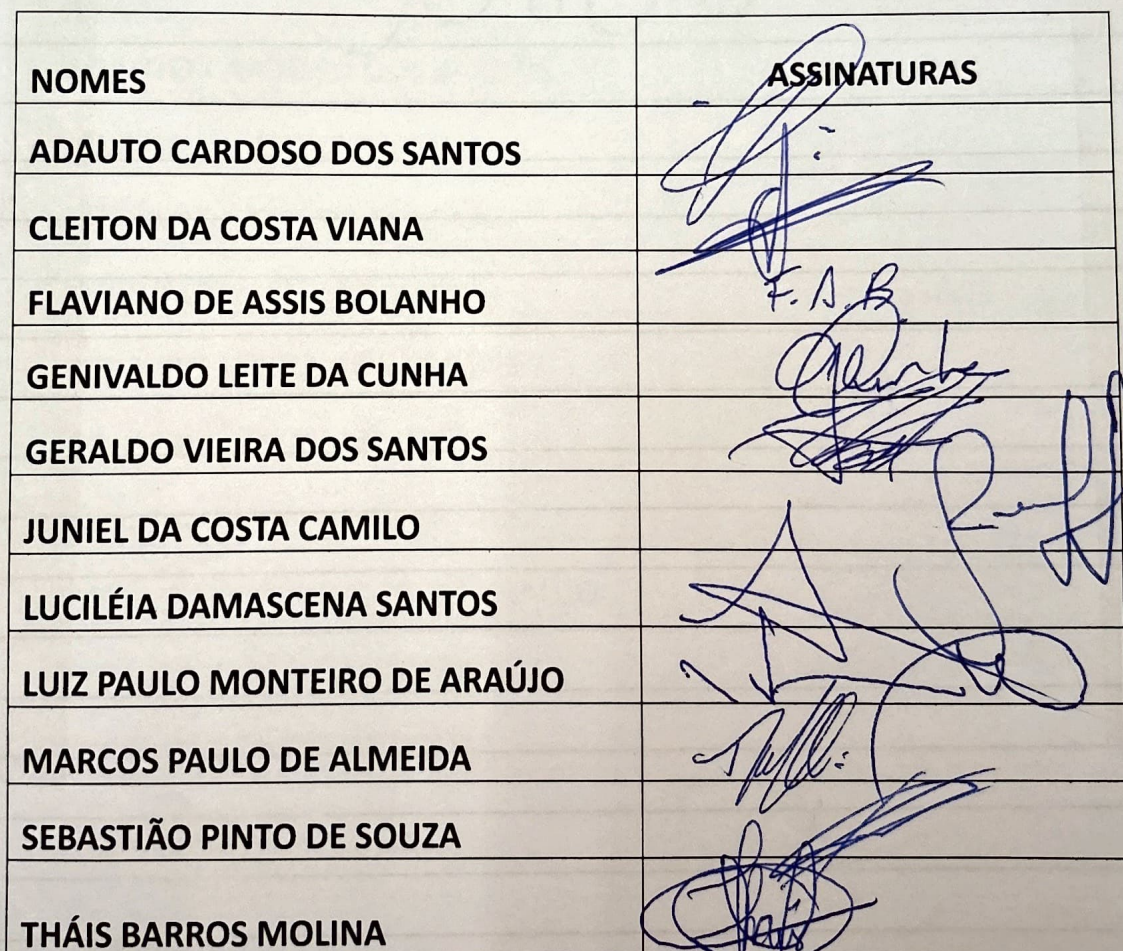 NOMES ASSINATURAS
ADAUTO CARDOSO DOS SANTOS
CLEITON DA COSTA VIANA
FLAVIANO DE ASSIS BOLANHO F. A. B
GENIVALDO LEITE DA CUNHA
GERALDO VIEIRA DOS SANTOS
JUNIEL DA COSTA CAMILO
LUCILÉIA DAMASCENA SANTOS
LUIZ PAULO MONTEIRO DE ARAÚJO
MARCOS PAULO DE ALMEIDA
SEBASTIÃO PINTO DE SOUZA
THÁIS BARROS MOLINA